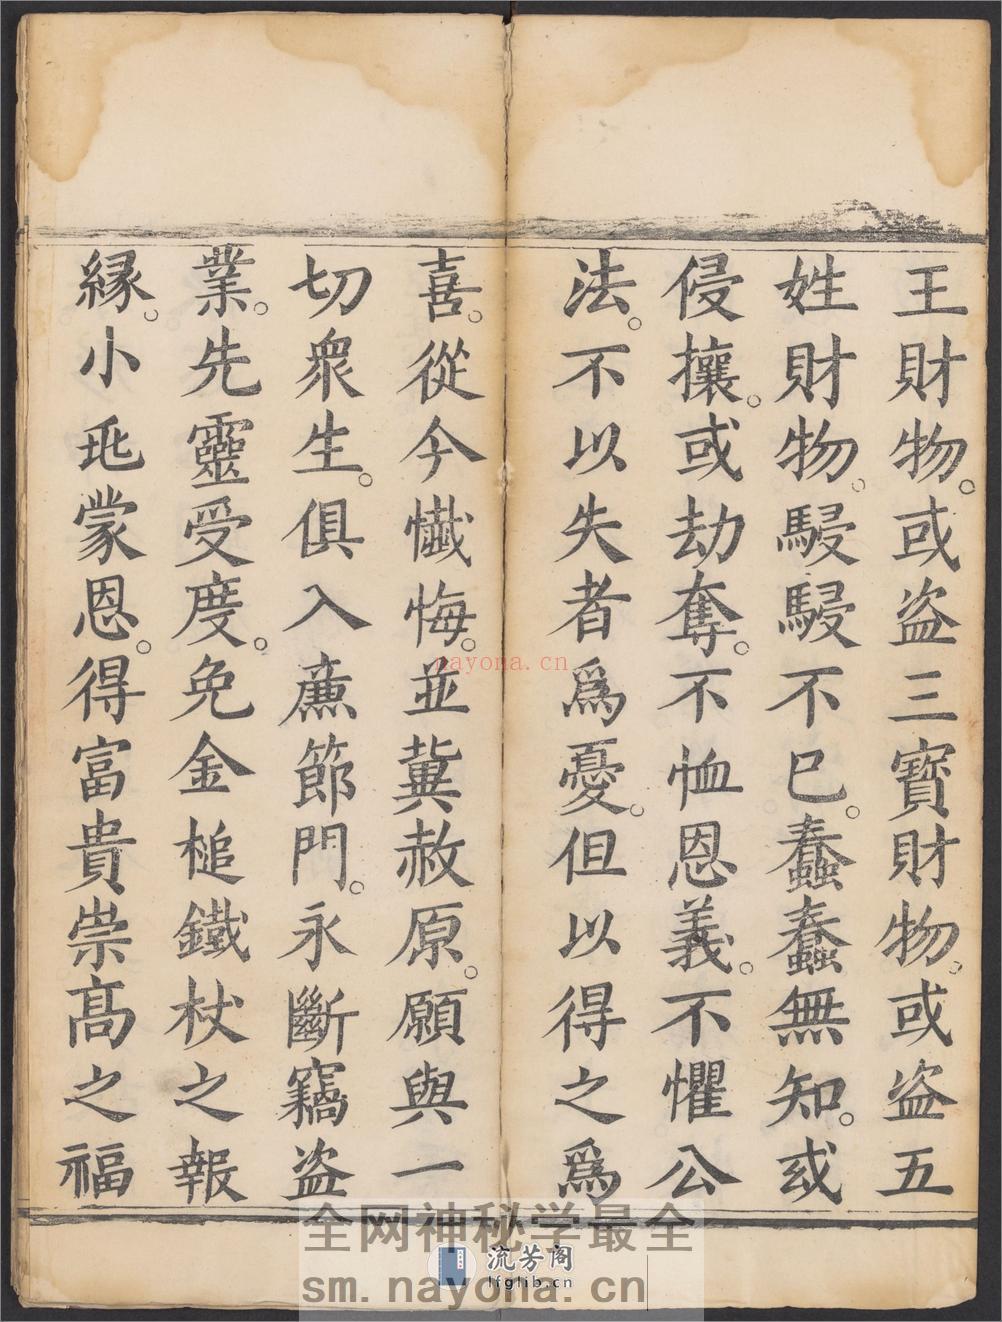 王財物。或盗三寳財物。或盗五
姓財物。駸駸不已。蠢蠢無知。或
侵攘。或劫奪。不恤恩義。不懼公
法。不以失者爲憂。但以得之爲
喜。從今懺悔。並冀赦原。願與一
切衆生。俱入廉節門。永斷竊盗
業。先靈受度。免金槌鐵杖之報
緣。小兆蒙恩。得富貴崇髙之福
nayona.cn
全网神秘学最全
流芳阁
lfglib.cn
sm.nayona.cn